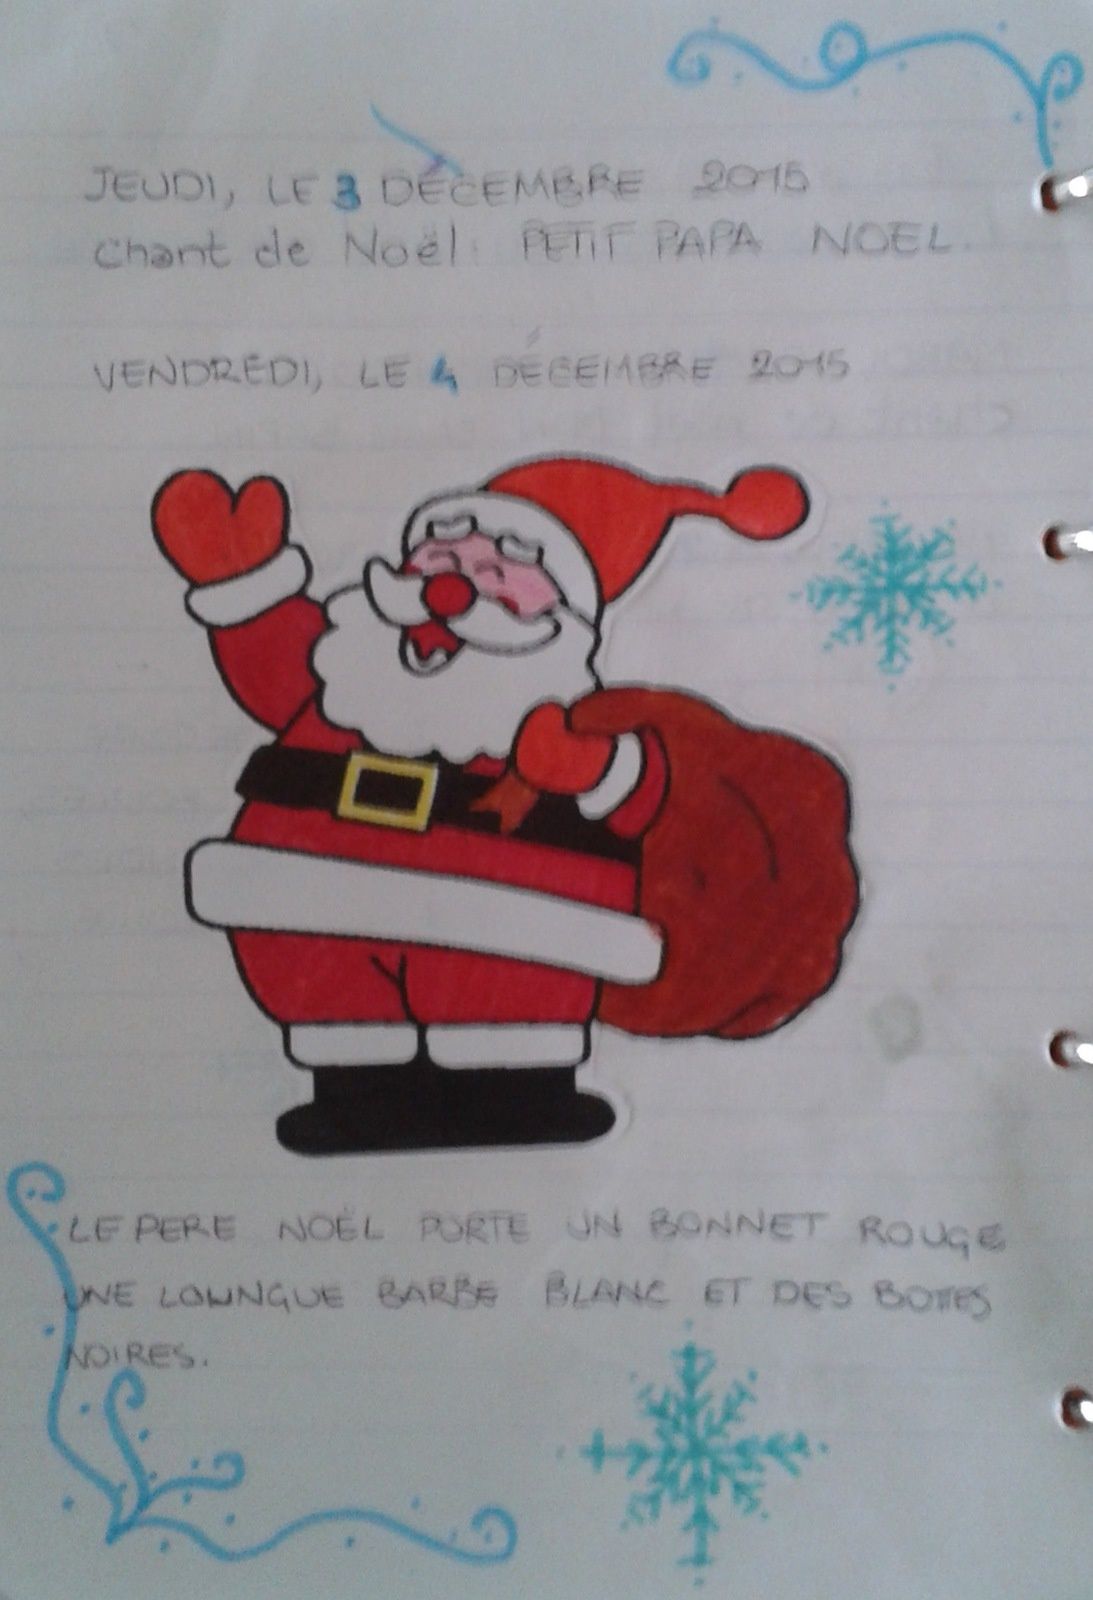 JEUDI, LE 3 DÉCEMBRE 2015
Chant de Noël: PETIT PAPA NOEL.
VENDREDI, LE 4 DÉCEMBRE 2015
LE PERE NOËL PORTE UN BONNET ROUGE
UNE LOUNGUE BARBE BLANC ET DES BOTTES
NOIRES.